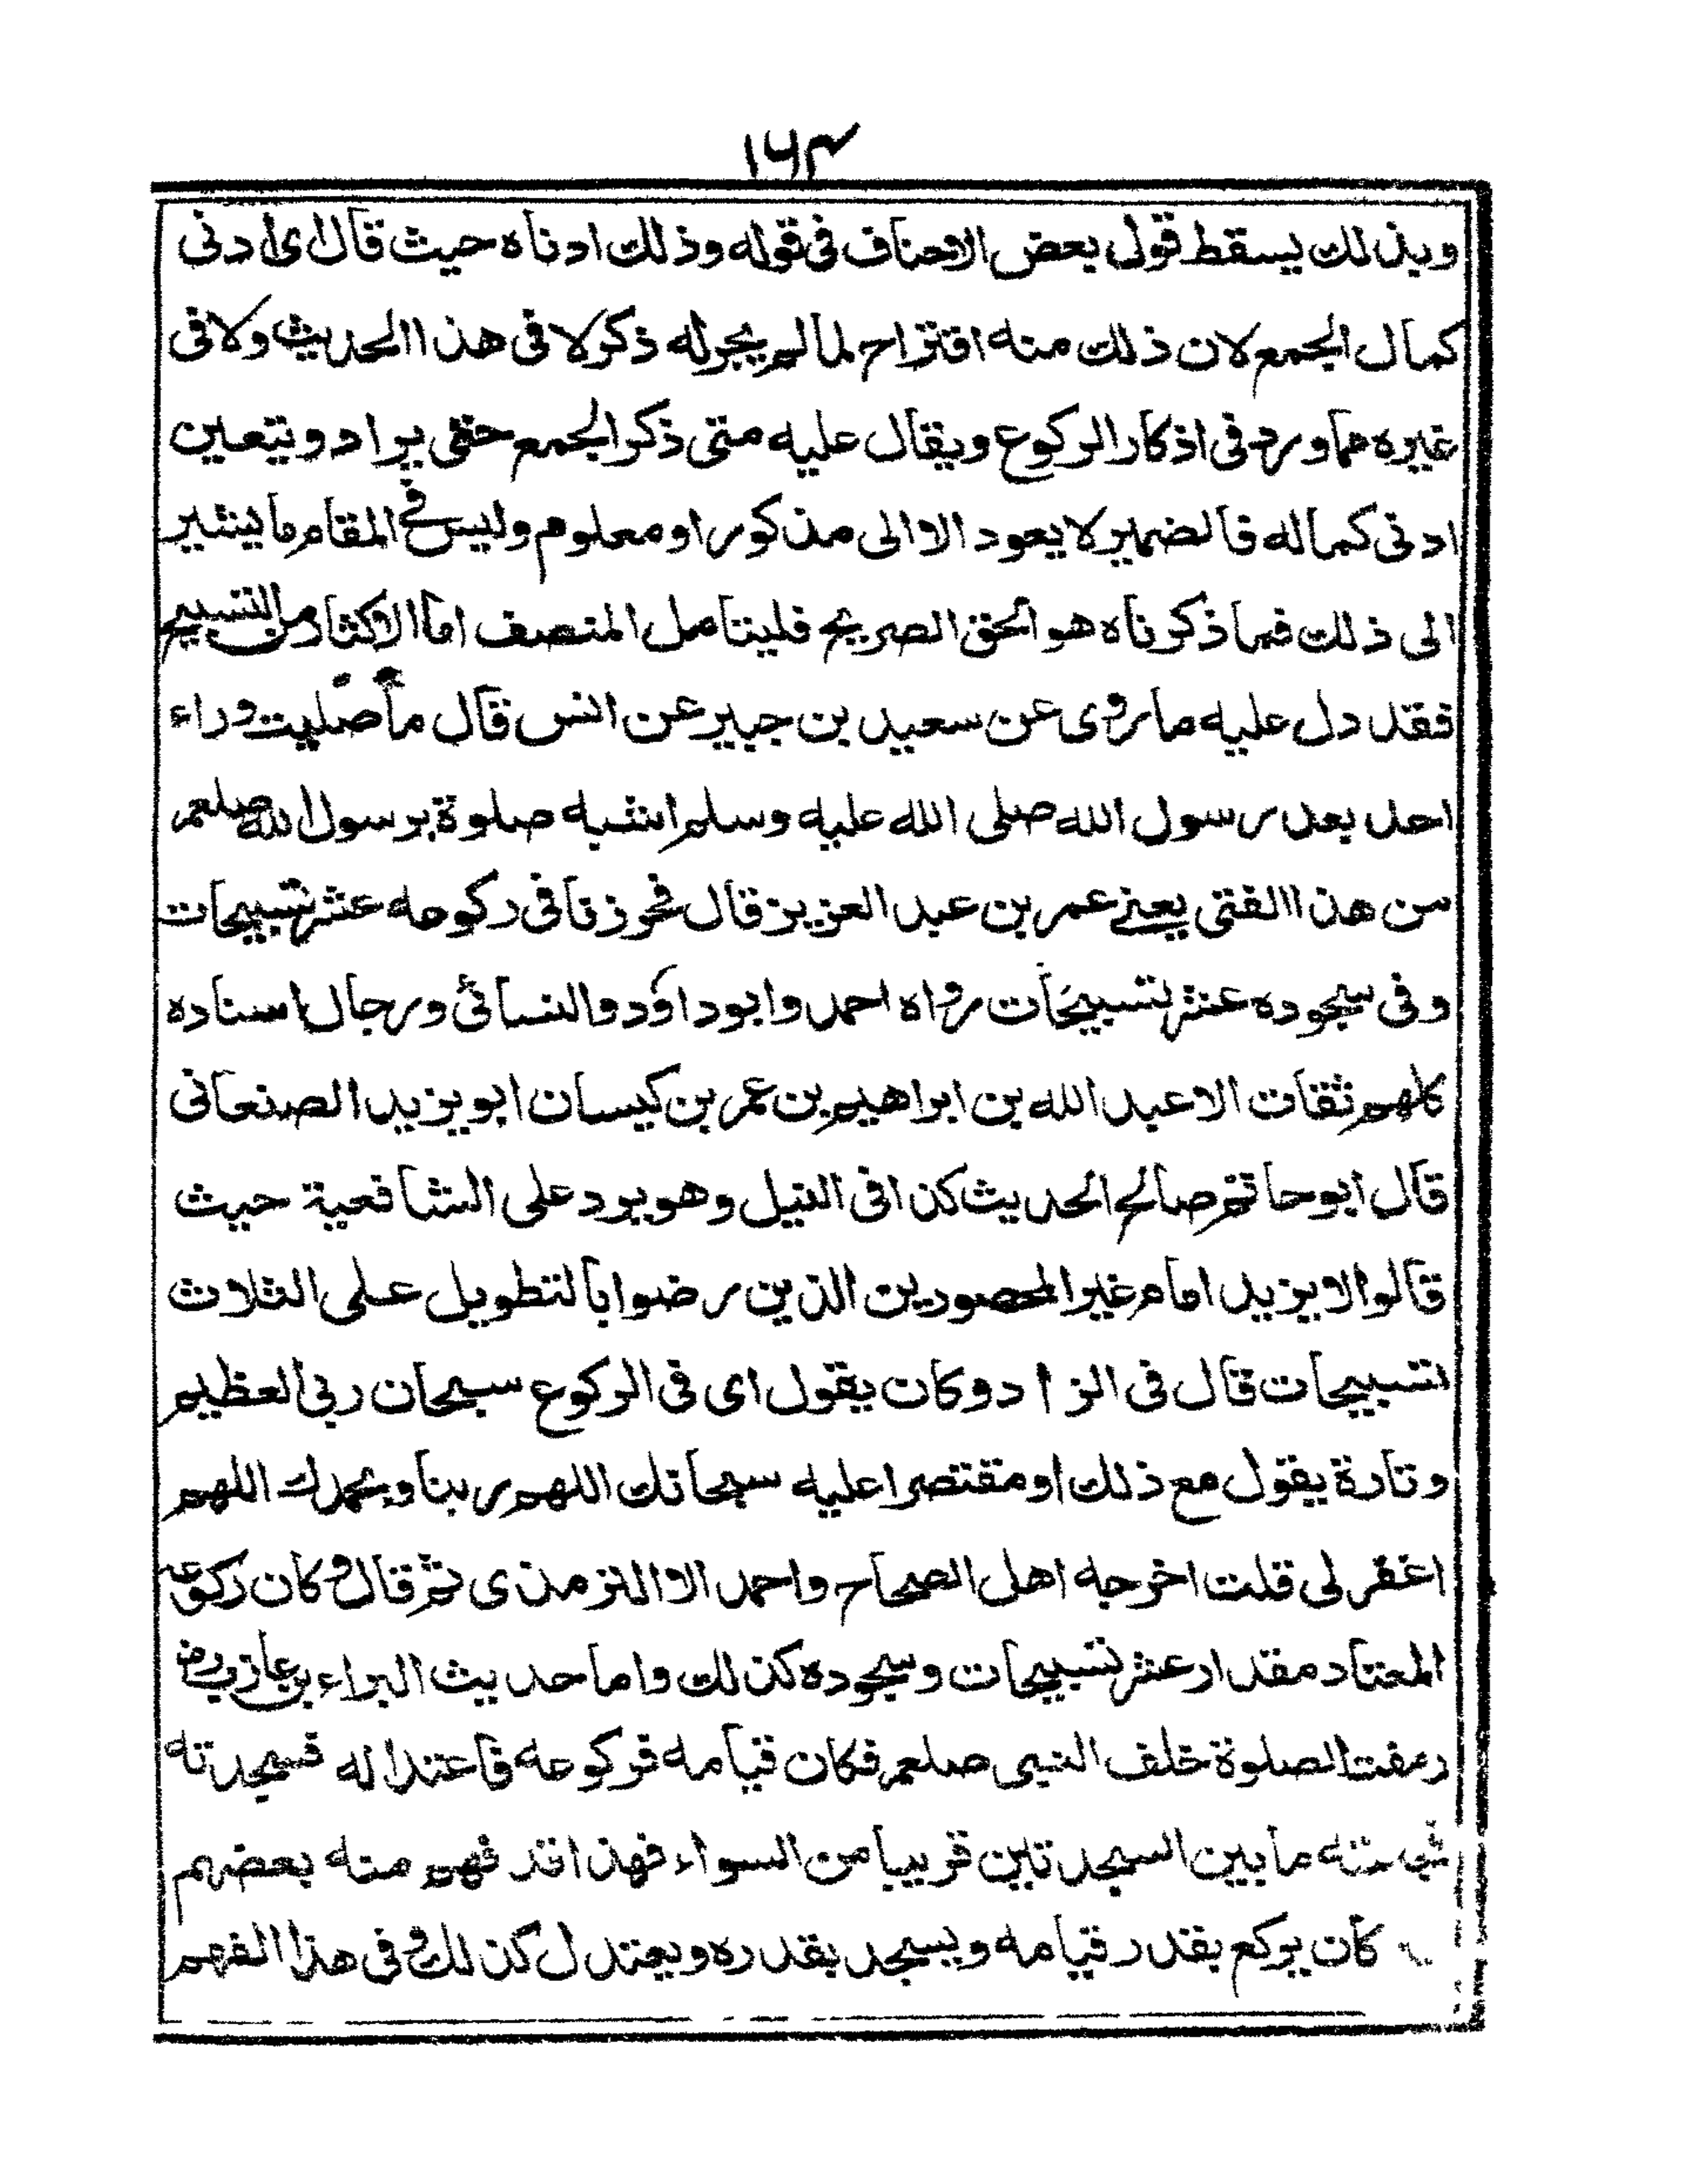 ١٦٣
وبذلك يسقط قول بعض الاحناف فى قوله وذلك ادناه حيث قال اى ادنى
كمال الجمع لان ذلك منه اقتراح لما لم يجر له ذكر لا فى هذا الحديث ولا فى
غيره مما ورد فى اذكار الركوع ويقال عليه متى ذكر الجمع حتى يراد ويتعين
ادنى كماله فالضمير لا يعود الا الى مذكور او معلوم وليس فى المقام ما يشير
الى ذلك فما ذكرناه هو الحق الصريح فليتامل المنصف اما الاكثار من التسبيح
فقد دل عليه ما روى عن سعيد بن جبير عن انس قال ما صليت وراء
احد بعد رسول الله صلى الله عليه وسلم اشبه صلوة برسول الله صلعم
من هذا الفتى يعنى عمر بن عبد العزيز قال فحوزنا فى ركوعه عشر تسبيحات
وفى سجوده عشر تسبيحات رواه احمد وابو داؤد والنسائى ورجال اسناده
كلهم ثقات الا عبد الله بن ابراهيم بن عمر بن كيسان ابو يزيد الصنعانى
قال ابو حاتم صالح الحديث كذا فى النيل وهو يرد على الشافعية حيث
قالوا لا يزيد امام غير المحصورين الذين رضوا بالتطويل على الثلاث
تسبيحات قال فى الزاد وكان يقول اى فى الركوع سبحان ربى العظيم
وتارة يقول مع ذلك او مقتصرا عليه سبحانك اللهم ربنا وبحمدك اللهم
اغفر لى قلت اخرجه اهل الصحاح واحمد الا الترمذى ثم قال وكان ركوعه
المعتاد مقدار عشر تسبيحات وسجوده كذلك واما حديث البراء بن عازب رض
رمقت الصلوة خلف النبى صلعم فكان قيامه فركوعه فاعتداله فسجدته
ما بين السجدتين قريبا من السواء فهذا قد فهم منه بعضهم
كان يركع بقدر قيامه ويسجد بقدره ويعتدل كذلك وفى هذا الفهم